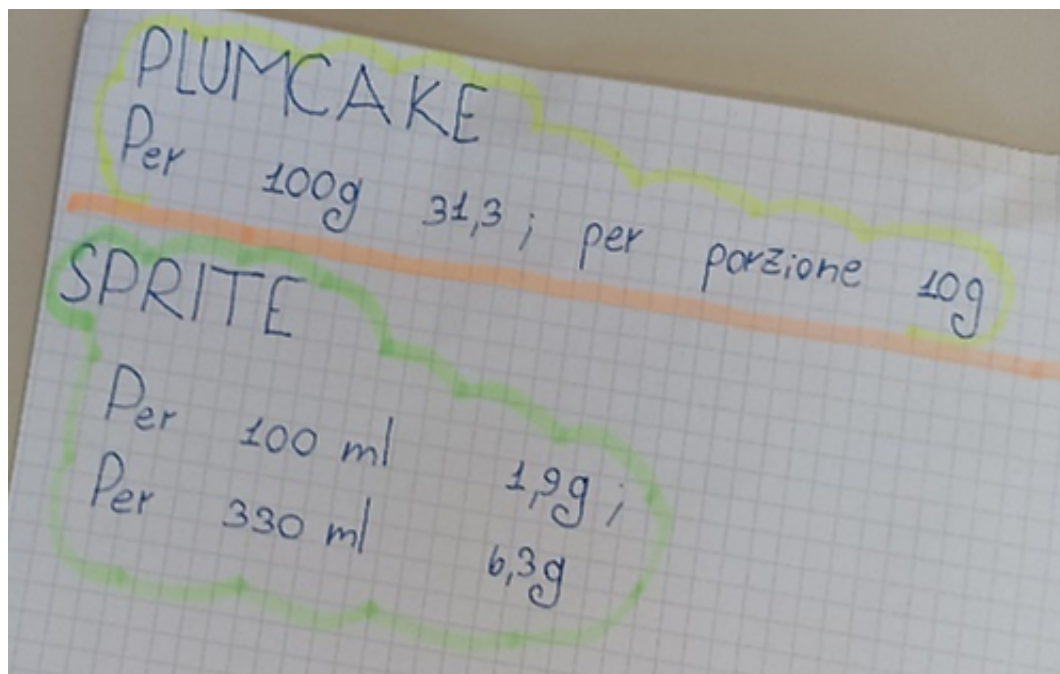 PLUMCAKE
Per 100g 31,3 ; per porzione 10g
SPRITE
Per 100 ml 1,9g ;
Per 330 ml 6,3g